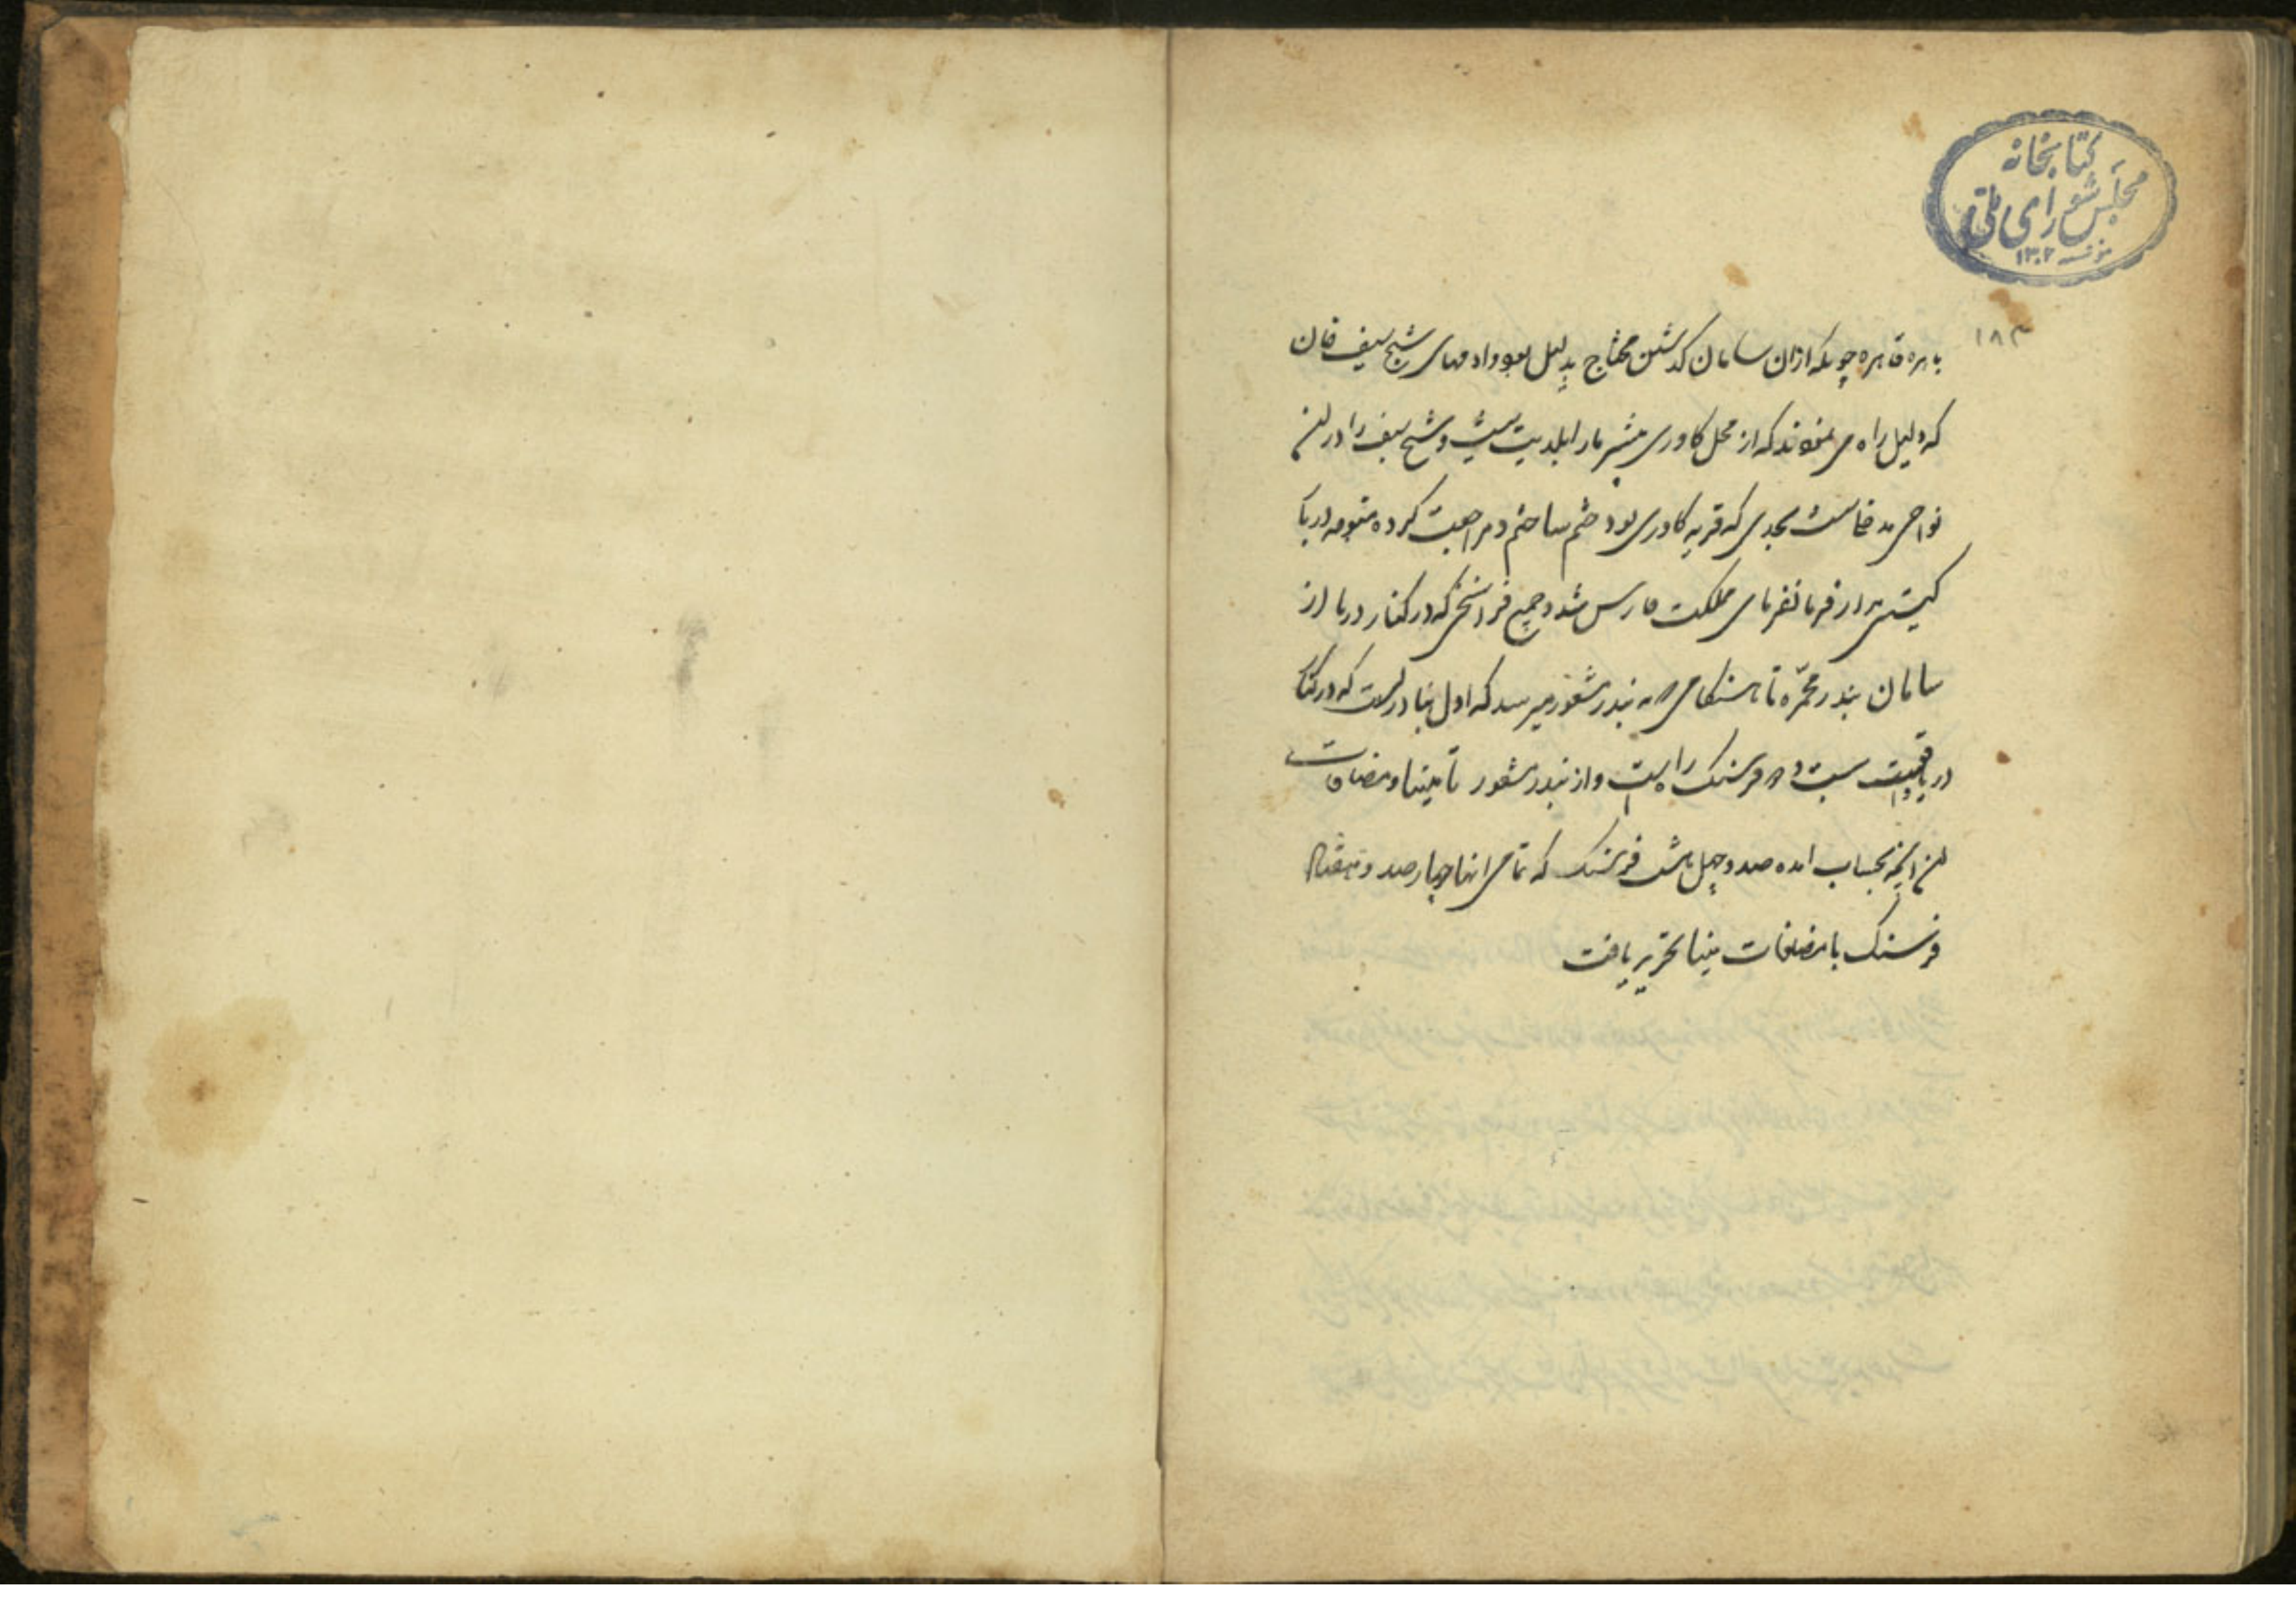 کتابخانه
مجلس شورای ملی
۱۳۰۲
۱۸۳
باهره قاهره چونکه ازان سامان کدشتن محتاج بدلیل بود و ادمهای شیخ سیف خان
که دلیل راه می نمودند که از محل کاوری بیشتر مارا بلدیت نیست و شیخ سیف را در این
نواحی مداخلت بحدی که قریه کاوری بود ختم ساختم و مراجعت کرده متوجه دربار
کیتی مدار فرمانفرمای مملکت فارس شد و جمیع فراسخی که در کنار دریا از
سامان بندر محمره تا هنکامی که به بندر شغور میرسد که اول بنادریست که در کنار
دریا واقعست دو فرسنک راهست و از بندر شغور تا مینا و مضافات
این انچه بحساب امده صد و چهل هشت فرسنک که تمامی انها چهار صد و هفتاد
فرسنک با مضافات مینا تحریر یافت